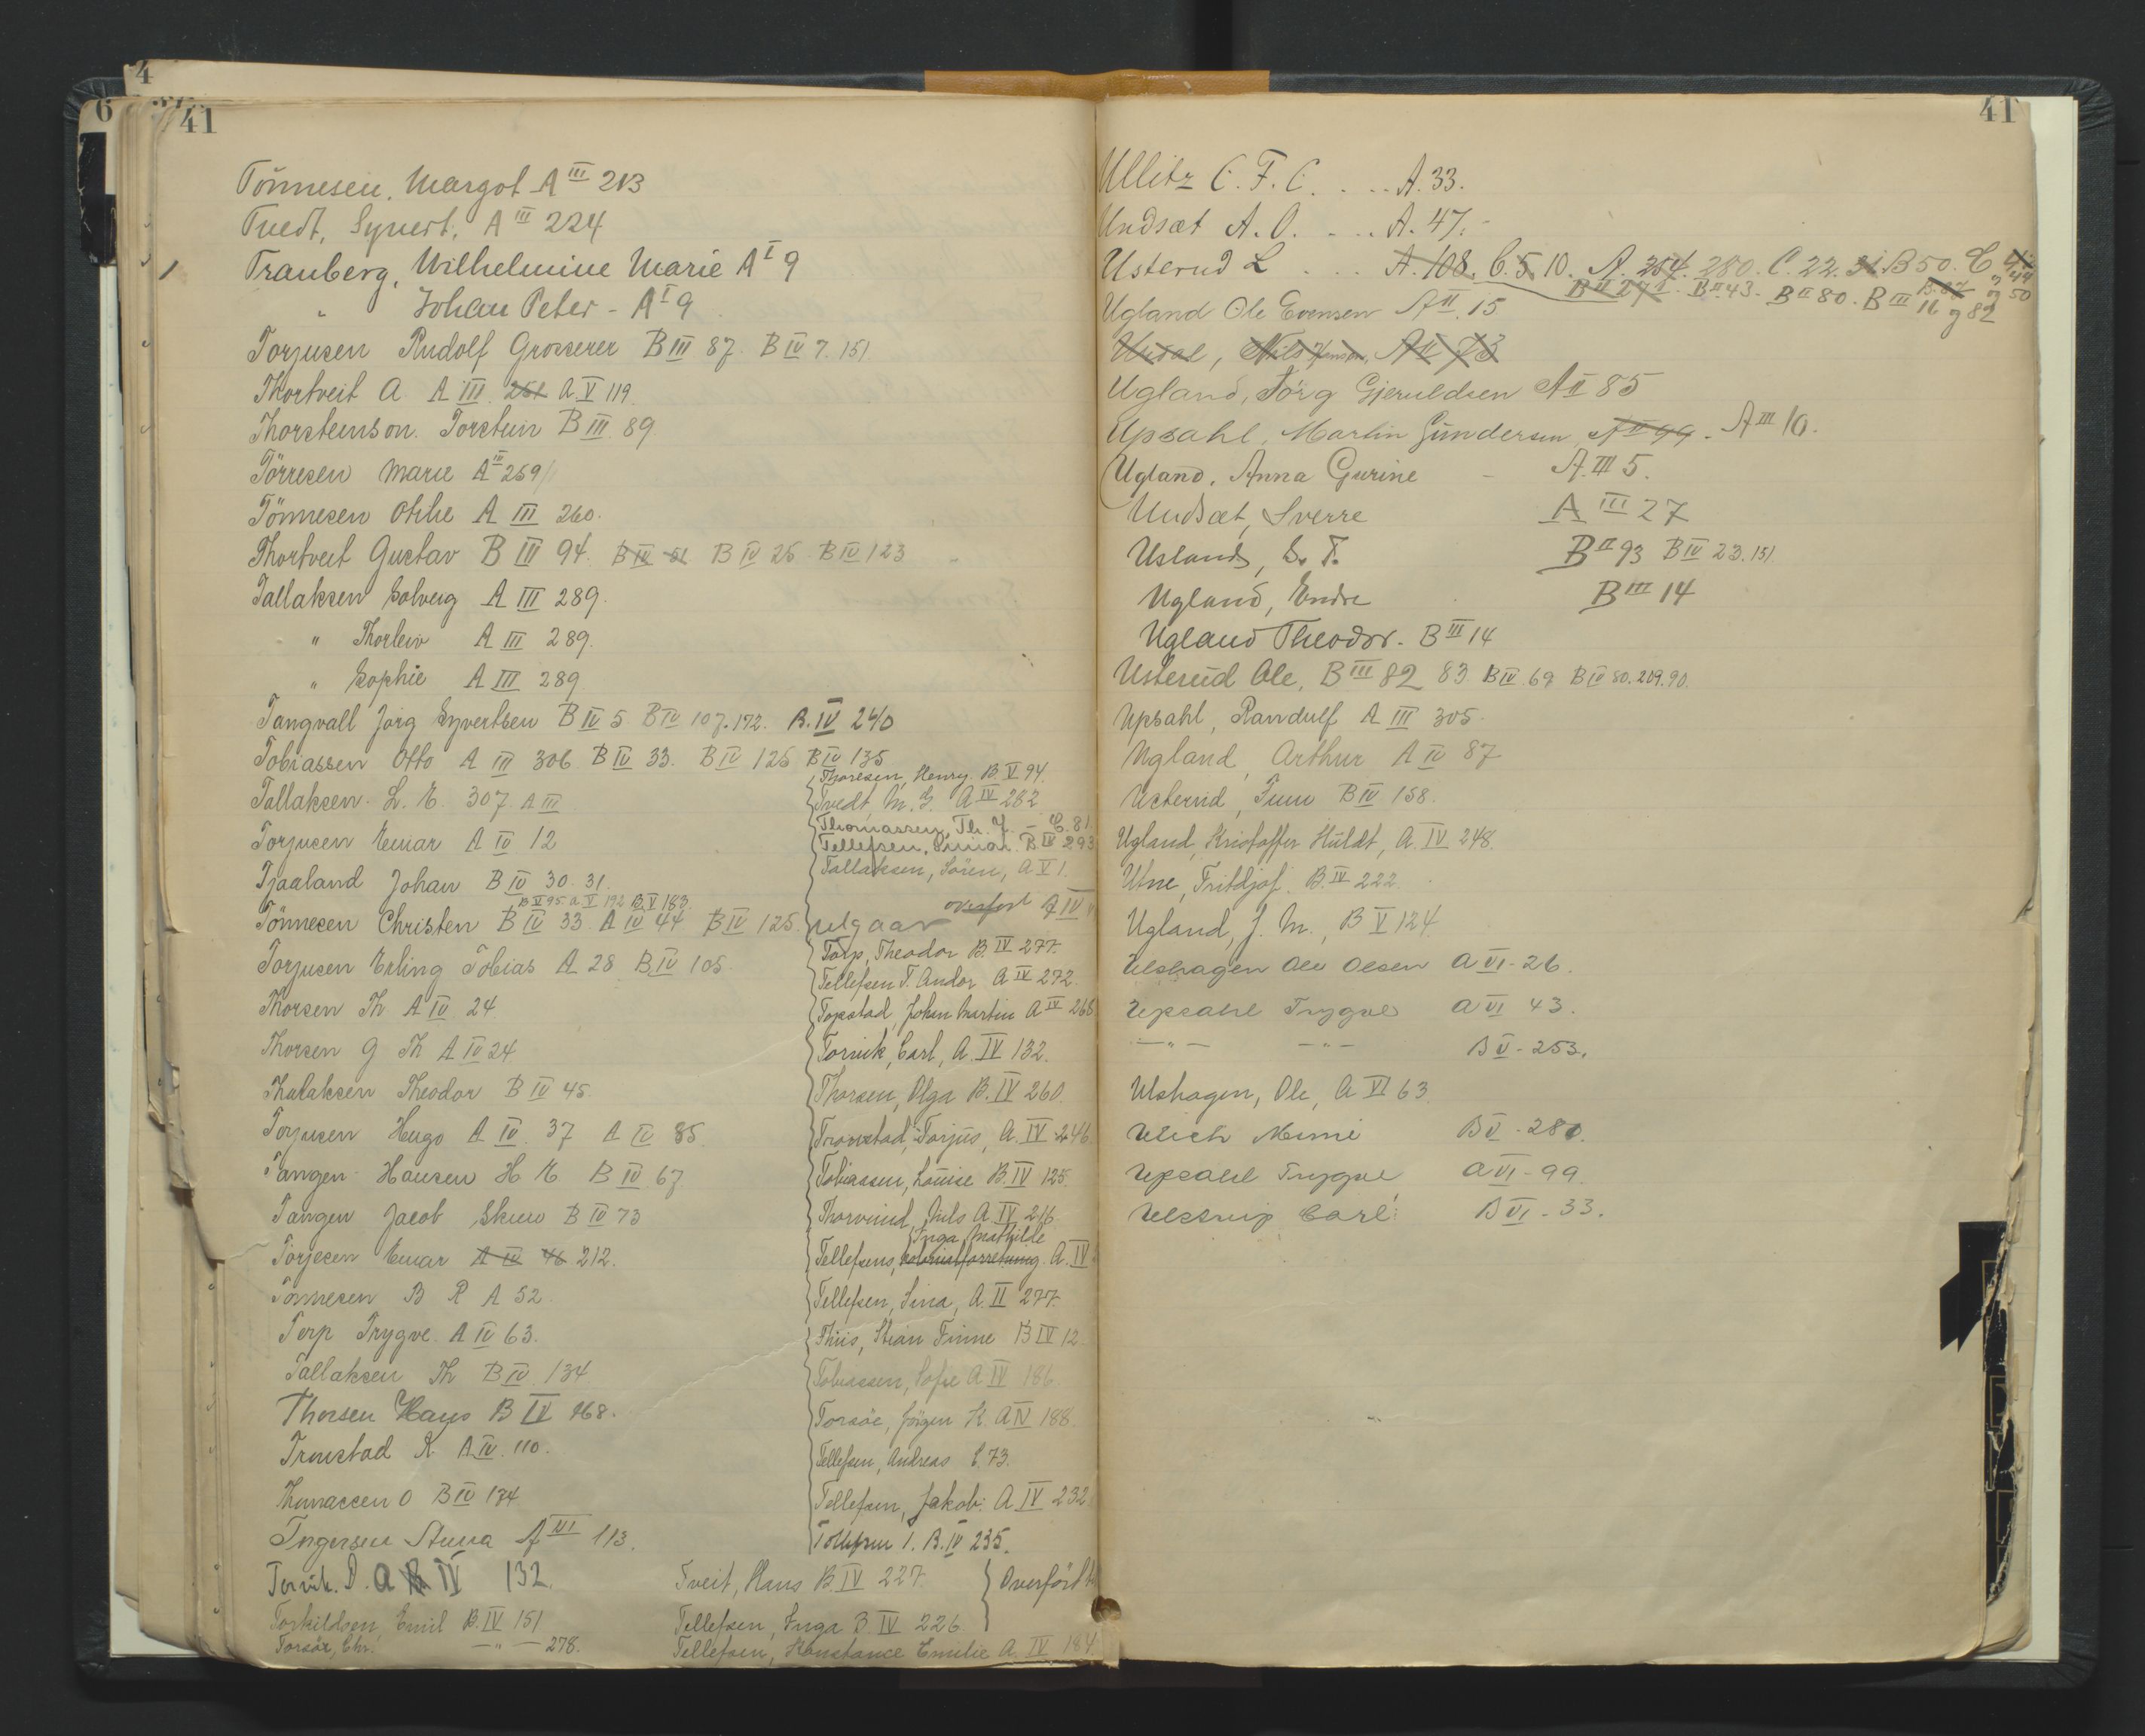 4
6
41
Tönnesen, Margot A III 213
Tvedt, Syvert, A III 224
Tranberg, Wilhelmine Marie A I 9
" Johan Peter - A I 9
Torjusen Rudolf Grosserer B III 87. B IV 7. 151
Thortveit A. A III 251 A. V 119
Thorsteinson. Torstein B III. 89
Törresen Marie A IV 259
Tönnesen Othe A III 260.
Thortveit Gustav B III 94. B IV 21 B IV 25 B IV 123
Tallaksen Solveig A III 289.
" Thorleiv A III 289.
" Sophie A III 289
Tangvall Jörg Syvertsen B IV 5 B IV 107. 172. B. IV 240
Tobiassen Otto A III 306 B IV 33. B IV 125 B IV 135
Tallaksen. L. E. 307 A III
Torjusen Einar A IV 12
Tjaaland Johan B IV 30. 31.
B V 95 A V 192 B V 183
Tönnesen Christen B IV 33 A IV 44 B IV 125
Torjusen Erling Tobias A 28 B IV 105
Thorsen Th A IV 24
Thorsen G Th A IV 24
Theodor B IV 45
Torjusen Hugo A IV. 37 A IV 85
Tangen Hansen H E B IV 67
Tangen Jacob B IV 73
Torjesen Einar A IV 46 212.
Tönnesen B R A 52.
Torp Trygve A IV 63.
Tallaksen Th B IV. 134
Thorsen B IV 168.
R. A IV. 110.
Thomassen O B IV 174
A VI 113.
Torvik. P. A B IV 132.
Torkildsen, Emil B. IV 151
Torsöe, Chr. —"— 278.
Thoresen, Henry. B. V 94.
Tvedt, M. G. A IV 282
Thomassen, Th. J. - C. 81
Tellefsen, Einar. B IV 293
Tallaksen, Sören, A V 1.
utgaar
overfört A IV
Torp, Theodor B. IV 277.
Tellefsen T. Andor A IV 272
Topstad, Johan Martin A IV 268
Torvik, Carl, A. IV 132.
Thorsen, Olga B. IV 260.
Tronstad, Torjus, A. IV 246
Tobiassen, Louise B. IV 125.
Nils A IV 216
Inga Mathilde
Tellefsens, kolonialforretning. A. IV
Tellefsen, Sina, A. II 277.
Thiis, Stian Finne B IV 12
Tobiassen, Sofie A IV 186.
Torsöe, Jörgen K. A IV 188.
Tellefsen, Andreas C. 73.
Tellefsen, Jakob: A IV 232
T. B. IV 235.
Tveit, Hans B. IV 227.
Overfört
Tellefsen, Inga B. IV 226.
Tellefsen, Konstance Emilie A. IV 184
41
Ullitz C. F. C. . . . . A. 33.
Undsæt A. O. . . . . A. 47.
Usterud L . . . . A. 108. C. 5. 10. A. 254. 280. C. 22. 31. B 50. C
B II 271. B II 43. B II 80. B III 16 og 82
Ugland Ole Evensen A II. 15
Uidal, Nils Hansen, A II 73
Ugland, Törg Gjeruldsen A II 85
Upsahl, Martin Gundersen A II 99. A III 10.
Ugland, Anna Gurine - A. III 5.
Undsæt, Sverre A III 27
Usland, S. T. B II 93 B IV 23. 151
Ugland, Endre B III 14
Ugland Theodor. B III 14
Usterud Ole, B III 82 83 B IV. 69 B IV 80. 209. 90.
Upsahl, Randulf A III 305
Ugland, Arthur A IV 87
Usterud, B IV 158.
Ugland, Kristoffer Huldt, A. IV 248.
Utne, Fritdjof. B. IV 222.
Ugland, J. M., B V 124
Ulshagen Ole Olsen A VI - 26.
Upsahl Trygve A VI 43.
—"— —"— B V - 253.
Ulshagen, Ole, A VI 63
Ulich Mimi B V - 280.
Upsahl Trygve A VI - 99.
Ulstrup Carl. B VI - 33.